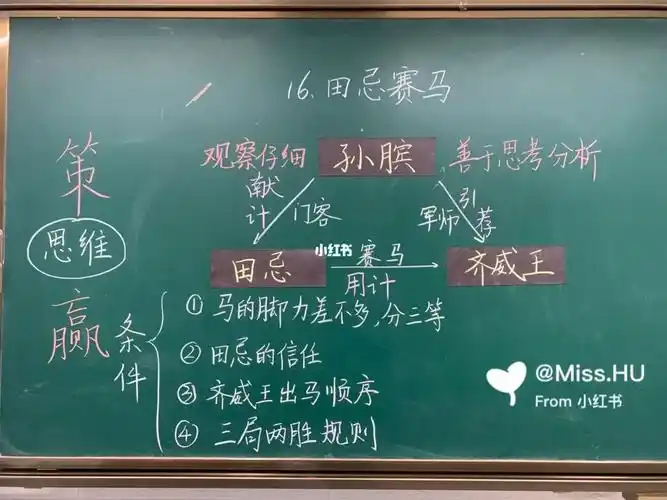 16、田忌赛马
策
思维
赢
观察仔细 孙膑 善于思考分析
献计 门客
军师 引荐
田忌 赛马 用计 齐威王
小红书
条件
① 马的脚力差不多,分三等
② 田忌的信任
③ 齐威王出马顺序
④ 三局两胜规则
@Miss.HU
From 小红书